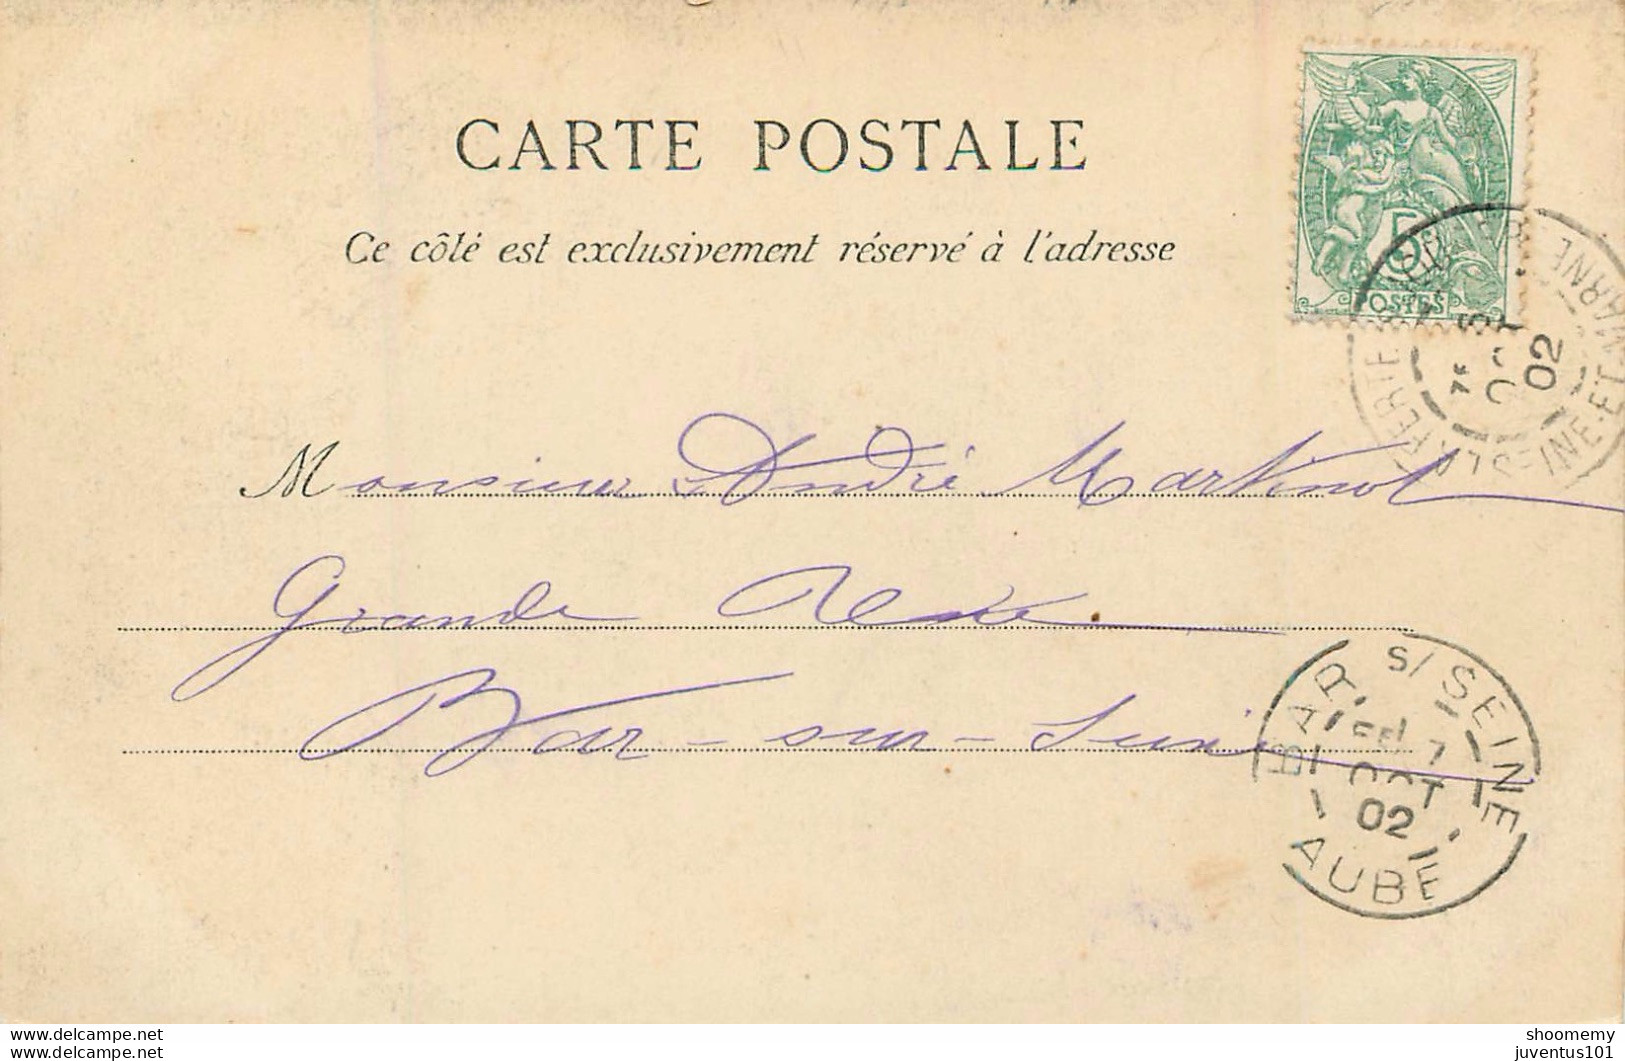 CARTE POSTALE
Ce côté est exclusivement réservé à l'adresse
5
POSTES
LA FERTE
SEINE-ET-MARNE
02
Monsieur André Martinot
Grande Rue
Bar-sur-Seine
BAR S/ SEINE
7
OCT
02
AUBE
www.delcampe.net
www.delcampe.net
shoomemy
juventus101